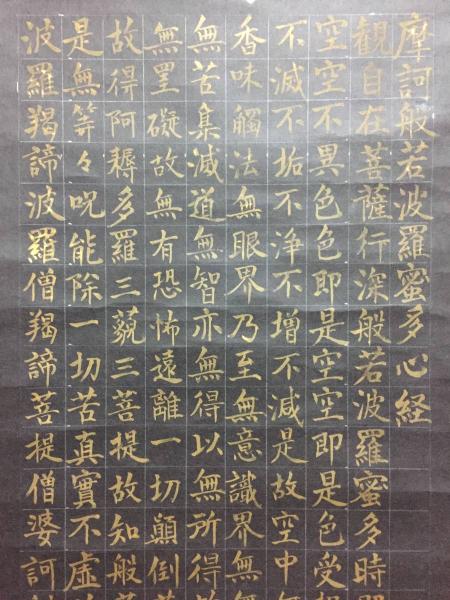 摩訶般若波羅蜜多心経
観自在菩薩行深般若波羅蜜多時
空空不異色色即是空空即是色受
不滅不垢不浄不増不減是故空中
香味觸法無眼界乃至無意識界無
無苦集滅道無智亦無得以無所得
無罣礙故無有恐怖遠離一切顛倒
故得阿耨多羅三藐三菩提故知般
是無等々呪能除一切苦真實不虚
波羅羯諦波羅僧羯諦菩提僧婆訶